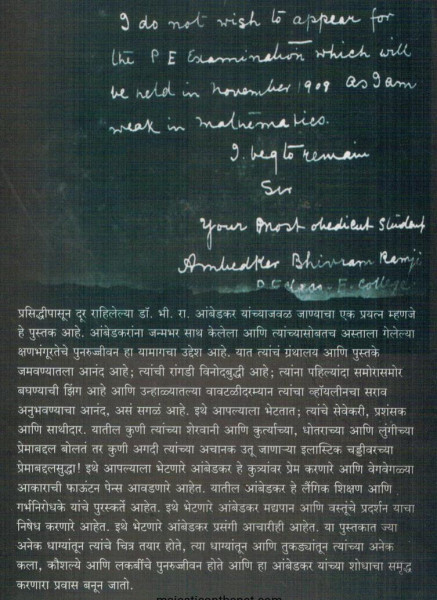 I do not wish to appear for
the P E Examination which will
be held in november 1909 as I am
weak in mathematics.
I beg to remain
Sir
your most obedient student
Ambedker Bhivram Ramji
P. E. Class - E. College
प्रसिद्धीपासून दूर राहिलेल्या डॉ. भी. रा. आंबेडकर यांच्याजवळ जाण्याचा एक प्रयत्न म्हणजे
हे पुस्तक आहे. आंबेडकरांना जन्मभर साथ केलेला आणि त्यांच्यासोबतच अस्ताला गेलेल्या
क्षणभंगुरतेचे पुनरुज्जीवन हा यामागचा उद्देश आहे. यात त्यांचं ग्रंथालय आणि पुस्तके
जमवण्यातला आनंद आहे; त्यांची रांगडी विनोदबुद्धी आहे; त्यांना पहिल्यांदा समोरासमोर
बघण्याची झिंग आहे आणि उन्हाळ्यातल्या वावटळीदरम्यान त्यांचा व्हॉयलीनचा सराव
अनुभवण्याचा आनंद, असं सगळं आहे. इथे आपल्याला भेटतात; त्यांचे सेवेकरी, प्रशंसक
आणि साथीदार. यातील कुणी त्यांच्या शेरवानी आणि कुर्त्याच्या, धोतराच्या आणि लुंगीच्या
प्रेमाबद्दल बोलतं तर कुणी अगदी त्यांच्या अचानक उतू जाणाऱ्या इलास्टिक चड्डीवरच्या
प्रेमाबद्दलसुद्धा! इथे आपल्याला भेटणारे आंबेडकर हे कुत्र्यांवर प्रेम करणारे आणि वेगवेगळ्या
आकाराची फाऊंटन पेन्स आवडणारे आहेत. यातील आंबेडकर हे लैंगिक शिक्षण आणि
गर्भनिरोधके यांचे पुरस्कर्ते आहेत. इथे भेटणारे आंबेडकर मद्यपान आणि वस्तूंचे प्रदर्शन याचा
निषेध करणारे आहेत. इथे भेटणारे आंबेडकर प्रसंगी आचारीही आहेत. या पुस्तकात ज्या
अनेक धाग्यांतून त्यांचे चित्र तयार होते, त्या धाग्यांतून आणि तुकड्यांतून त्यांच्या अनेक
कला, कौशल्ये आणि लकबींचे पुनरुज्जीवन होते आणि हा आंबेडकर यांच्या शोधाचा समृद्ध
करणारा प्रवास बनून जातो.
majesticonthenet.com